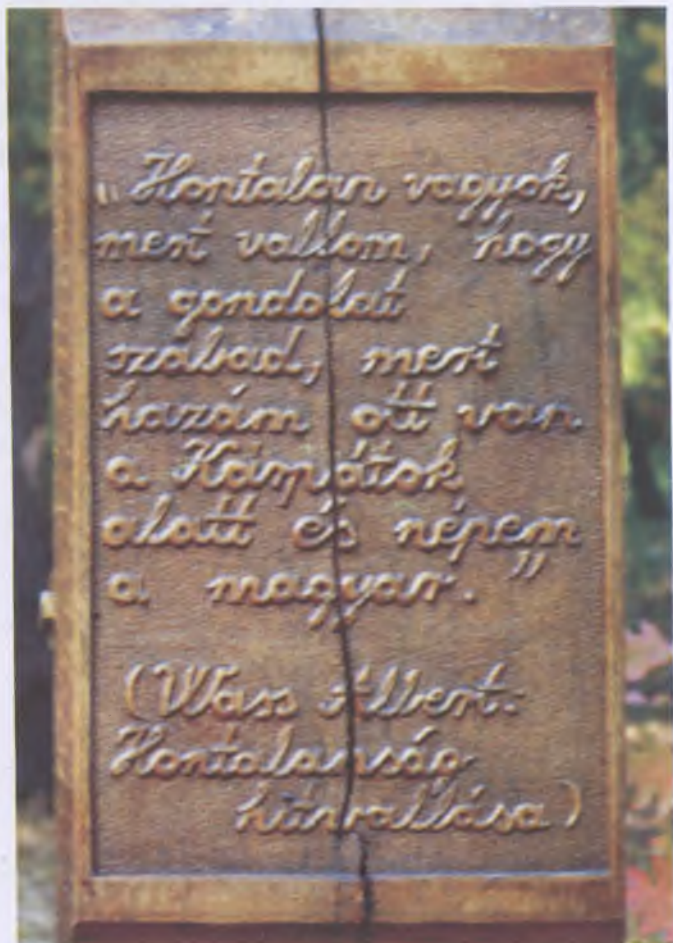 „Hontalan vagyok,
mert vallom, hogy
a gondolat
szabad, mert
hazám ott van
a Kárpátok
alatt és népem
a magyar.”
(Wass Albert:
Hontalanság
hitvallása)